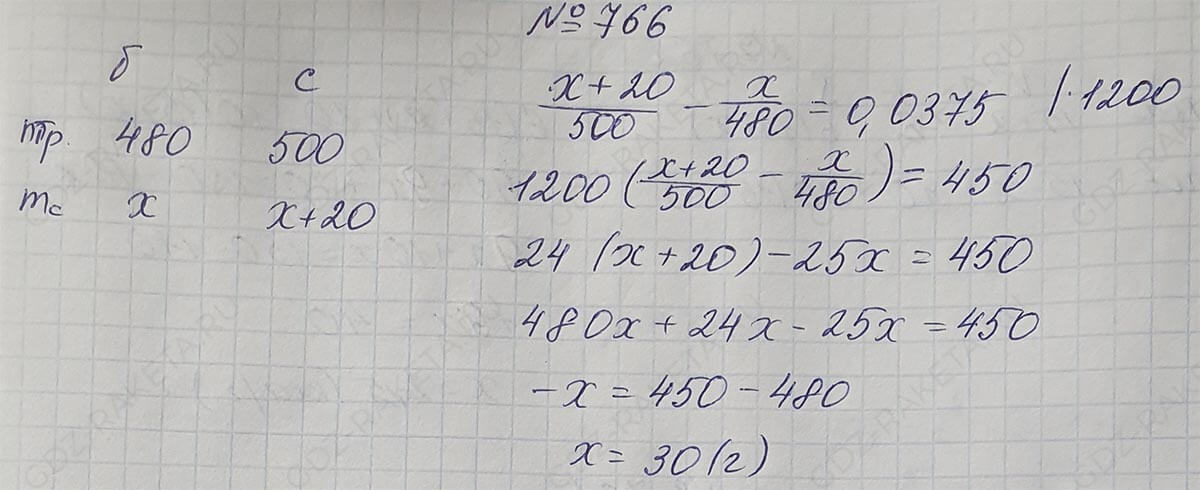 №766
б с
тр. 480 500
mс x x+20
(x+20)/500 - x/480 = 0,0375 |·1200
1200((x+20)/500 - x/480) = 450
24(x+20)-25x = 450
480x+24x-25x = 450
-x = 450-480
x = 30(г)